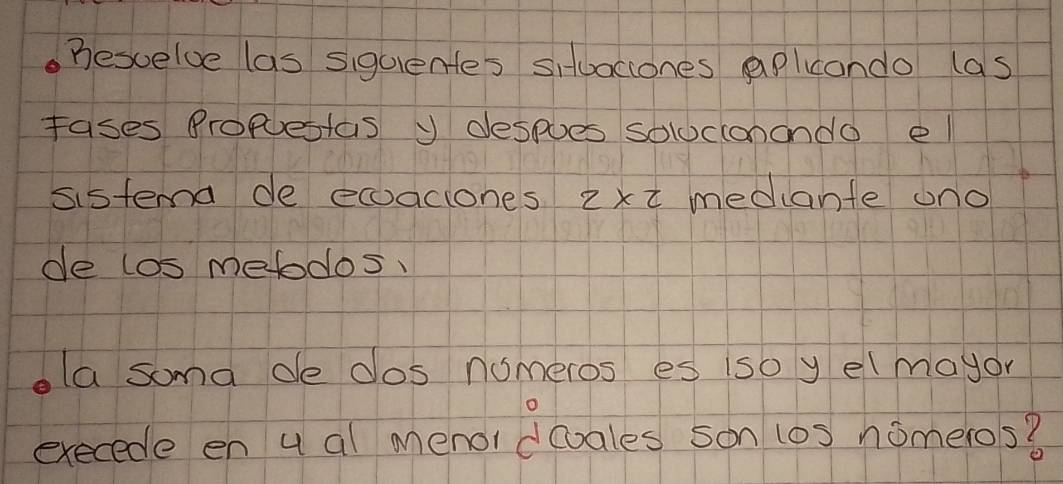 • Resuelve las siguientes situaciones aplicando las
fases propuestas y despues solucionando el
sistema de ecuaciones 2x2 mediante uno
de los metodos.
• la suma de dos números es 150 y el mayor
execede en 4 al menor ¿cuales son los números?